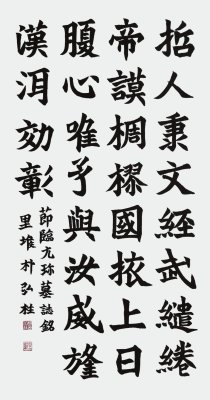 哲人秉文經武繾綣
帝謨椆樛國掖上曰
腹心唯予與汝威旌
漢洱効彰
節臨元珎墓誌銘
里堆朴弘桂